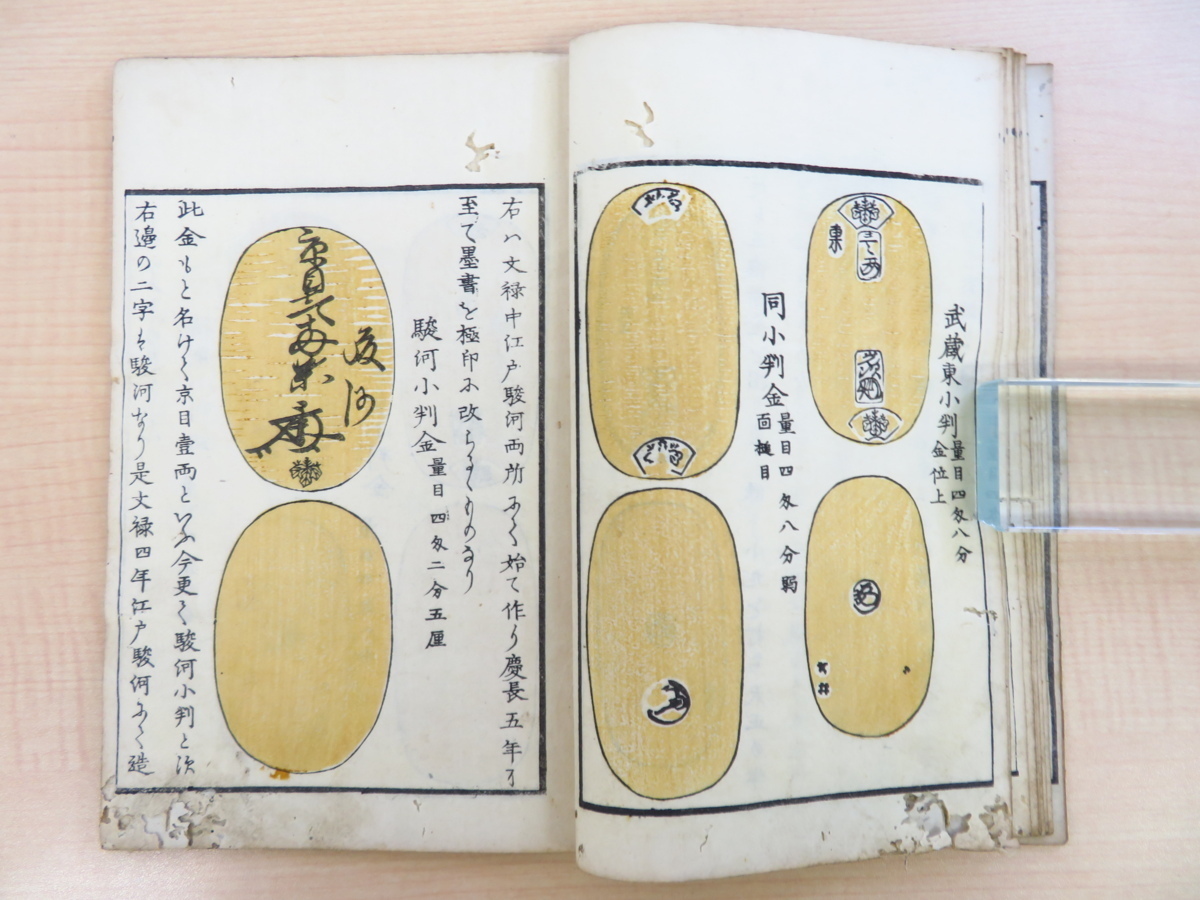 武蔵東小判 量目四匁八分
金位上
東
同小判金 量目四匁八分弱
面槌目
右ハ文禄中江戸駿河両所ニて始て作り慶長五年ニ
至て墨書を極印ニ改らるゝものなり
駿河小判金 量目四匁二分五厘
駿河
京目壹両
此金もと名けて京目壹両といふ今更て駿河小判と次
右邉の二字も駿河なり是文禄四年江戸駿河ニて造